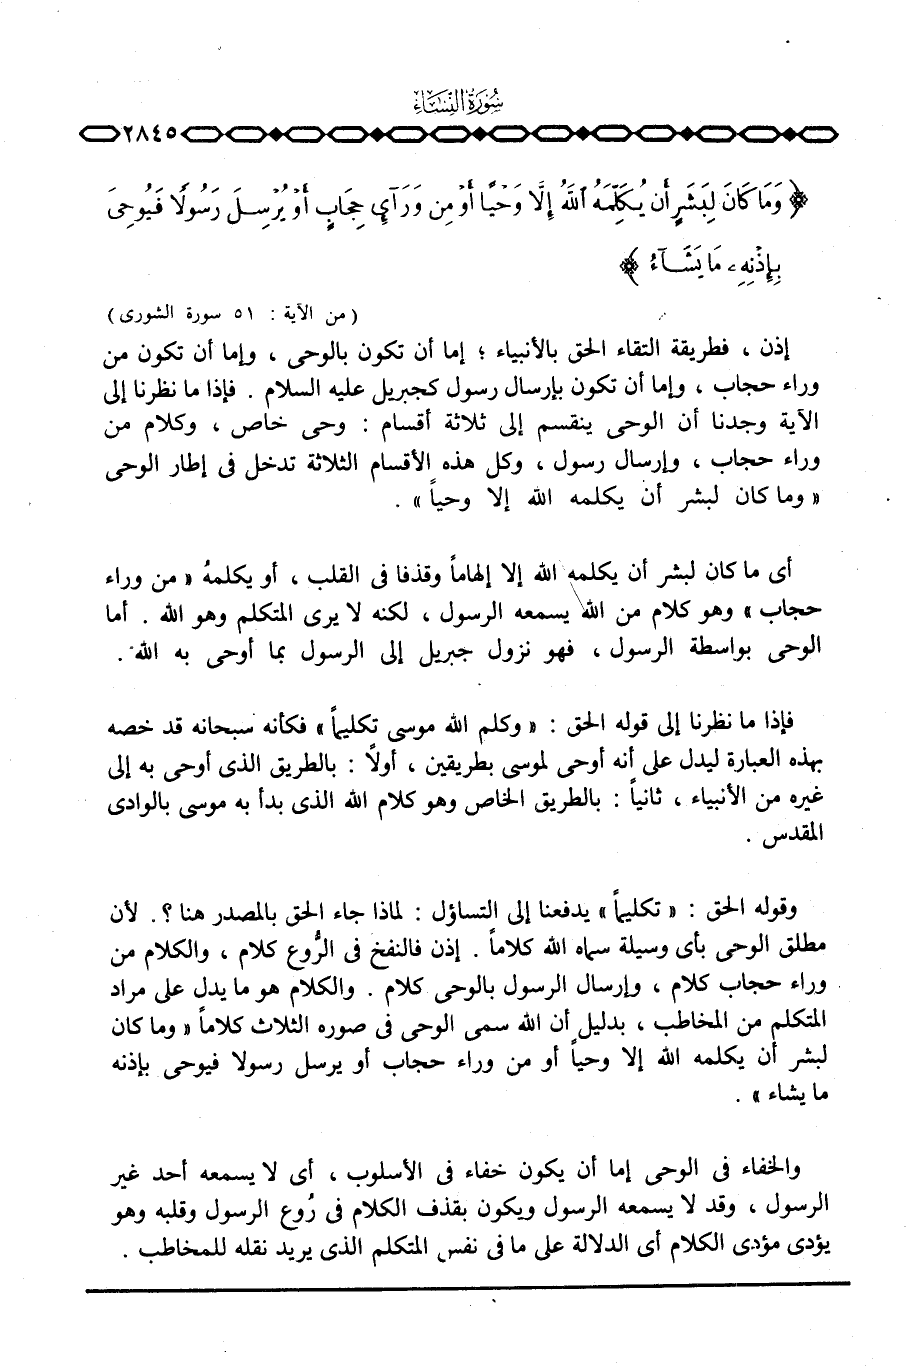 سُورَةُ النِّسَاءِ
٢٨٤٥
﴿ وَمَا كَانَ لِبَشَرٍ أَن يُكَلِّمَهُ ٱللَّهُ إِلَّا وَحْيًا أَوْ مِن وَرَآيِٕ حِجَابٍ أَوْ يُرْسِلَ رَسُولًا فَيُوحِىَ
بِإِذْنِهِۦ مَا يَشَآءُ ﴾
( من الآية : ٥١ سورة الشورى )
إذن ، فطريقة التقاء الحق بالأنبياء ؛ إما أن تكون بالوحى ، وإما أن تكون من
وراء حجاب ، وإما أن تكون بإرسال رسول كجبريل عليه السلام . فإذا ما نظرنا إلى
الآية وجدنا أن الوحى ينقسم إلى ثلاثة أقسام : وحى خاص ، وكلام من
وراء حجاب ، وإرسال رسول ، وكل هذه الأقسام الثلاثة تدخل فى إطار الوحى
« وما كان لبشر أن يكلمه الله إلا وحياً » .
أى ما كان لبشر أن يكلمه الله إلا إلهاماً وقذفا فى القلب ، أو يكلمهُ « من وراء
حجاب » وهو كلام من الله يسمعه الرسول ، لكنه لا يرى المتكلم وهو الله . أما
الوحى بواسطة الرسول ، فهو نزول جبريل إلى الرسول بما أوحى به الله .
فإذا ما نظرنا إلى قوله الحق : « وكلم الله موسى تكليماً » فكأنه سبحانه قد خصه
بهذه العبارة ليدل على أنه أوحى لموسى بطريقين ، أولاً : بالطريق الذى أوحى به إلى
غيره من الأنبياء ، ثانياً : بالطريق الخاص وهو كلام الله الذى بدأ به موسى بالوادى
المقدس .
وقوله الحق : « تكليماً » يدفعنا إلى التساؤل : لماذا جاء الحق بالمصدر هنا ؟. لأن
مطلق الوحى بأى وسيلة سماه الله كلاماً . إذن فالنفخ فى الرُّوع كلام ، والكلام من
وراء حجاب كلام ، وإرسال الرسول بالوحى كلام . والكلام هو ما يدل على مراد
المتكلم من المخاطب ، بدليل أن الله سمى الوحى فى صوره الثلاث كلاماً « وما كان
لبشر أن يكلمه الله إلا وحياً أو من وراء حجاب أو يرسل رسولا فيوحى بإذنه
ما يشاء » .
والخفاء فى الوحى إما أن يكون خفاء فى الأسلوب ، أى لا يسمعه أحد غير
الرسول ، وقد لا يسمعه الرسول ويكون بقذف الكلام فى رُوع الرسول وقلبه وهو
يؤدى مؤدى الكلام أى الدلالة على ما فى نفس المتكلم الذى يريد نقله للمخاطب .